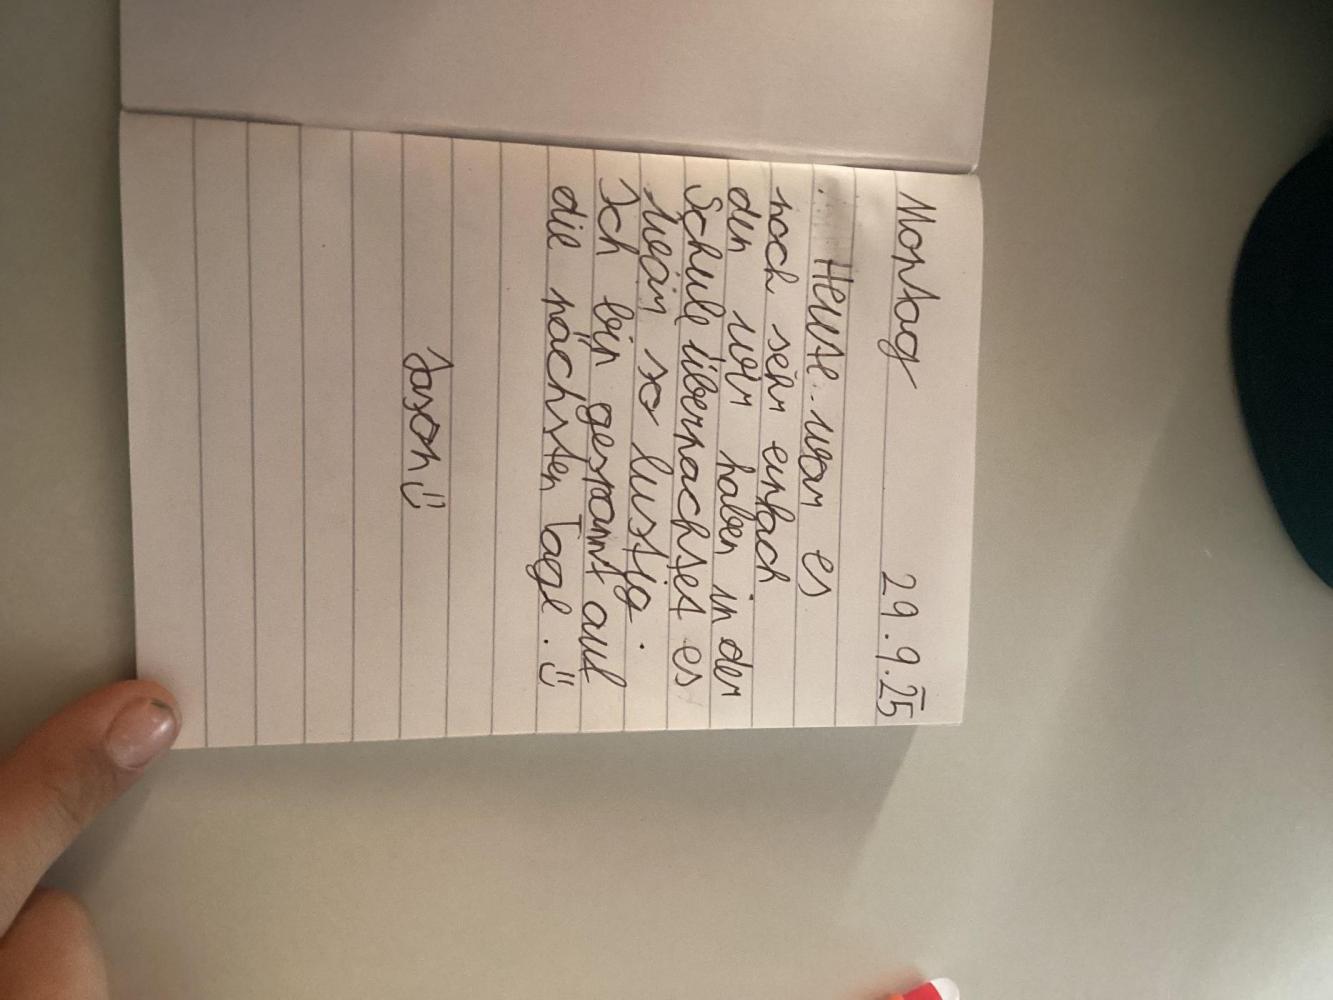 Montag 29.9.25
Heute war es
noch sehr einfach
den wir haben in der
Schule übernachtet es
so lustig.
Ich bin gespannt auf
die nächsten Tage. Ü
Jason Ü